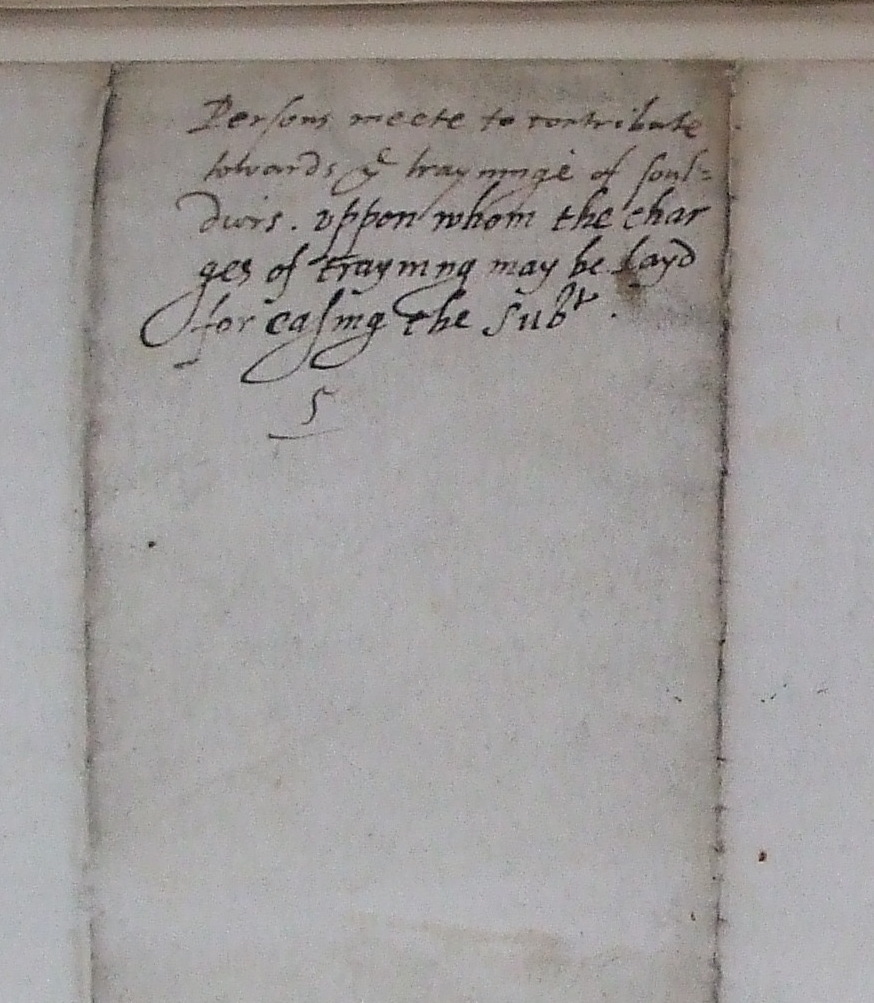 Persons meete to contribute
towards yͤ trayninge of soul=
diers. vppon whom the char
ges of trayning may be layd
for easing the Subᵗ.
5